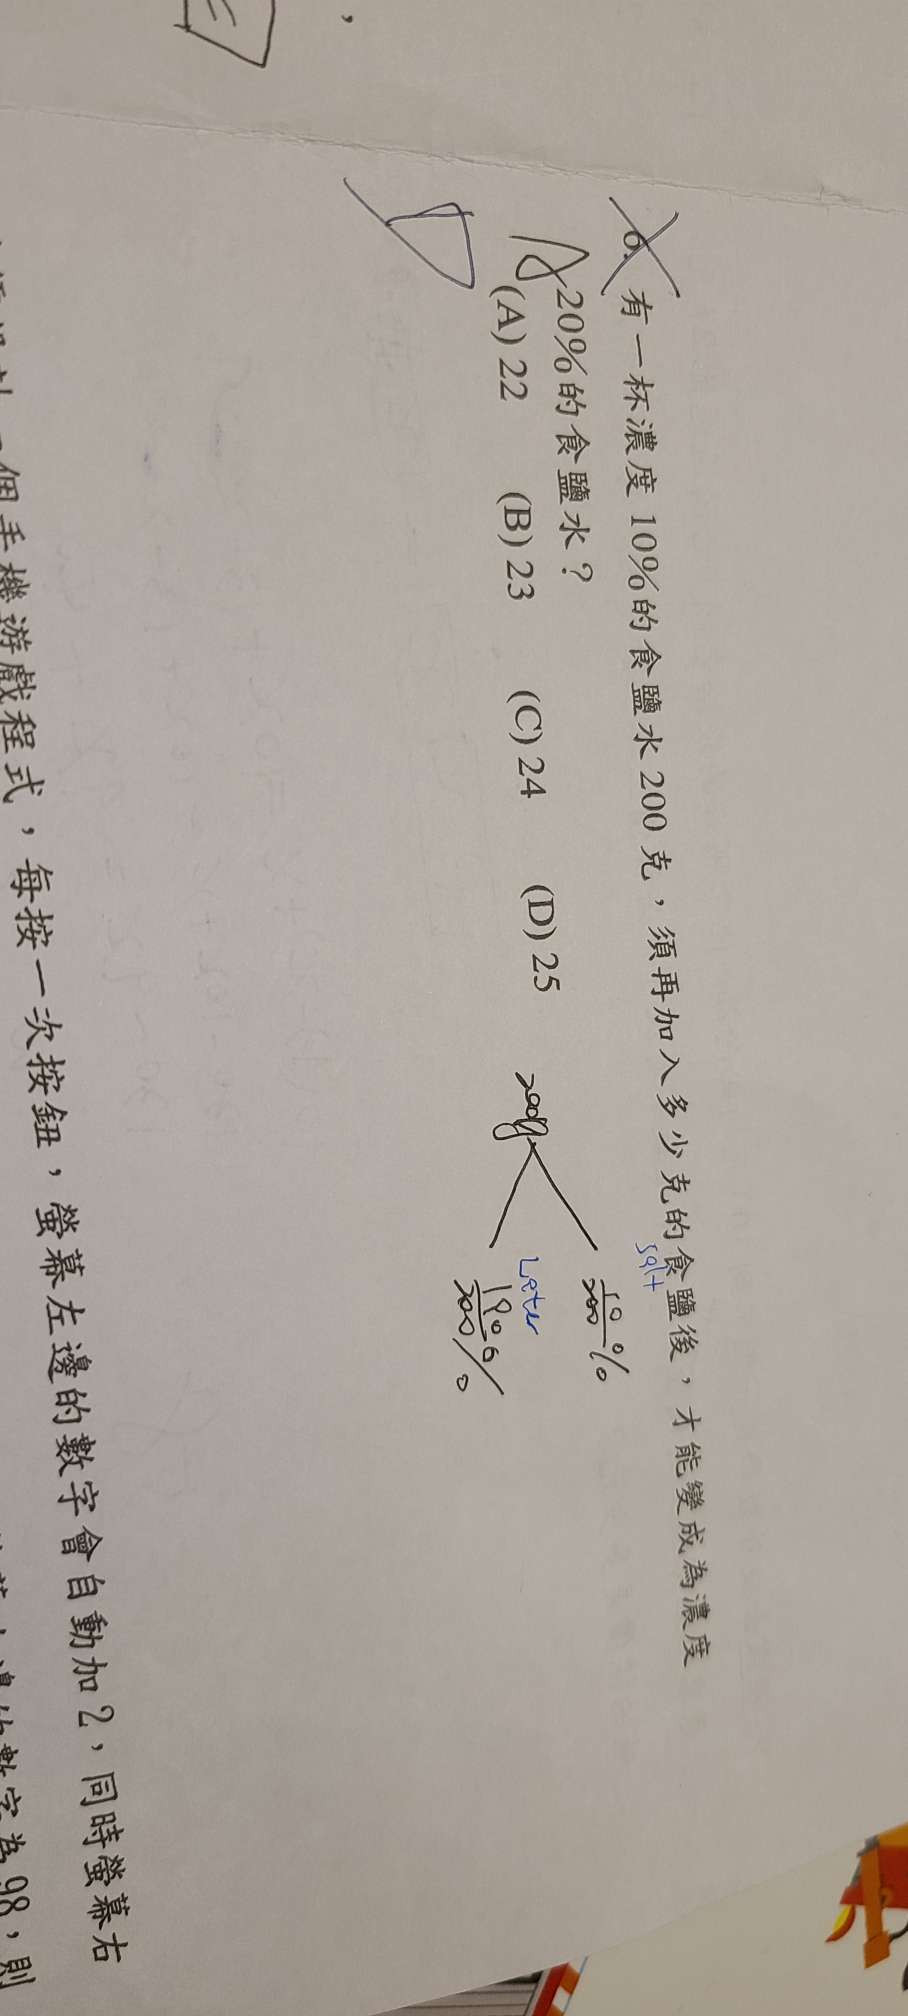 6. 有一杯濃度10%的食鹽水200克，須再加入多少克的食鹽後，才能變成為濃度
20%的食鹽水？
(A) 22 (B) 23 (C) 24 (D) 25
salt
10/200 %
200g
Later
190/200 %
個手機遊戲程式，每按一次按鈕，螢幕左邊的數字會自動加2，同時螢幕右
數字為98，則